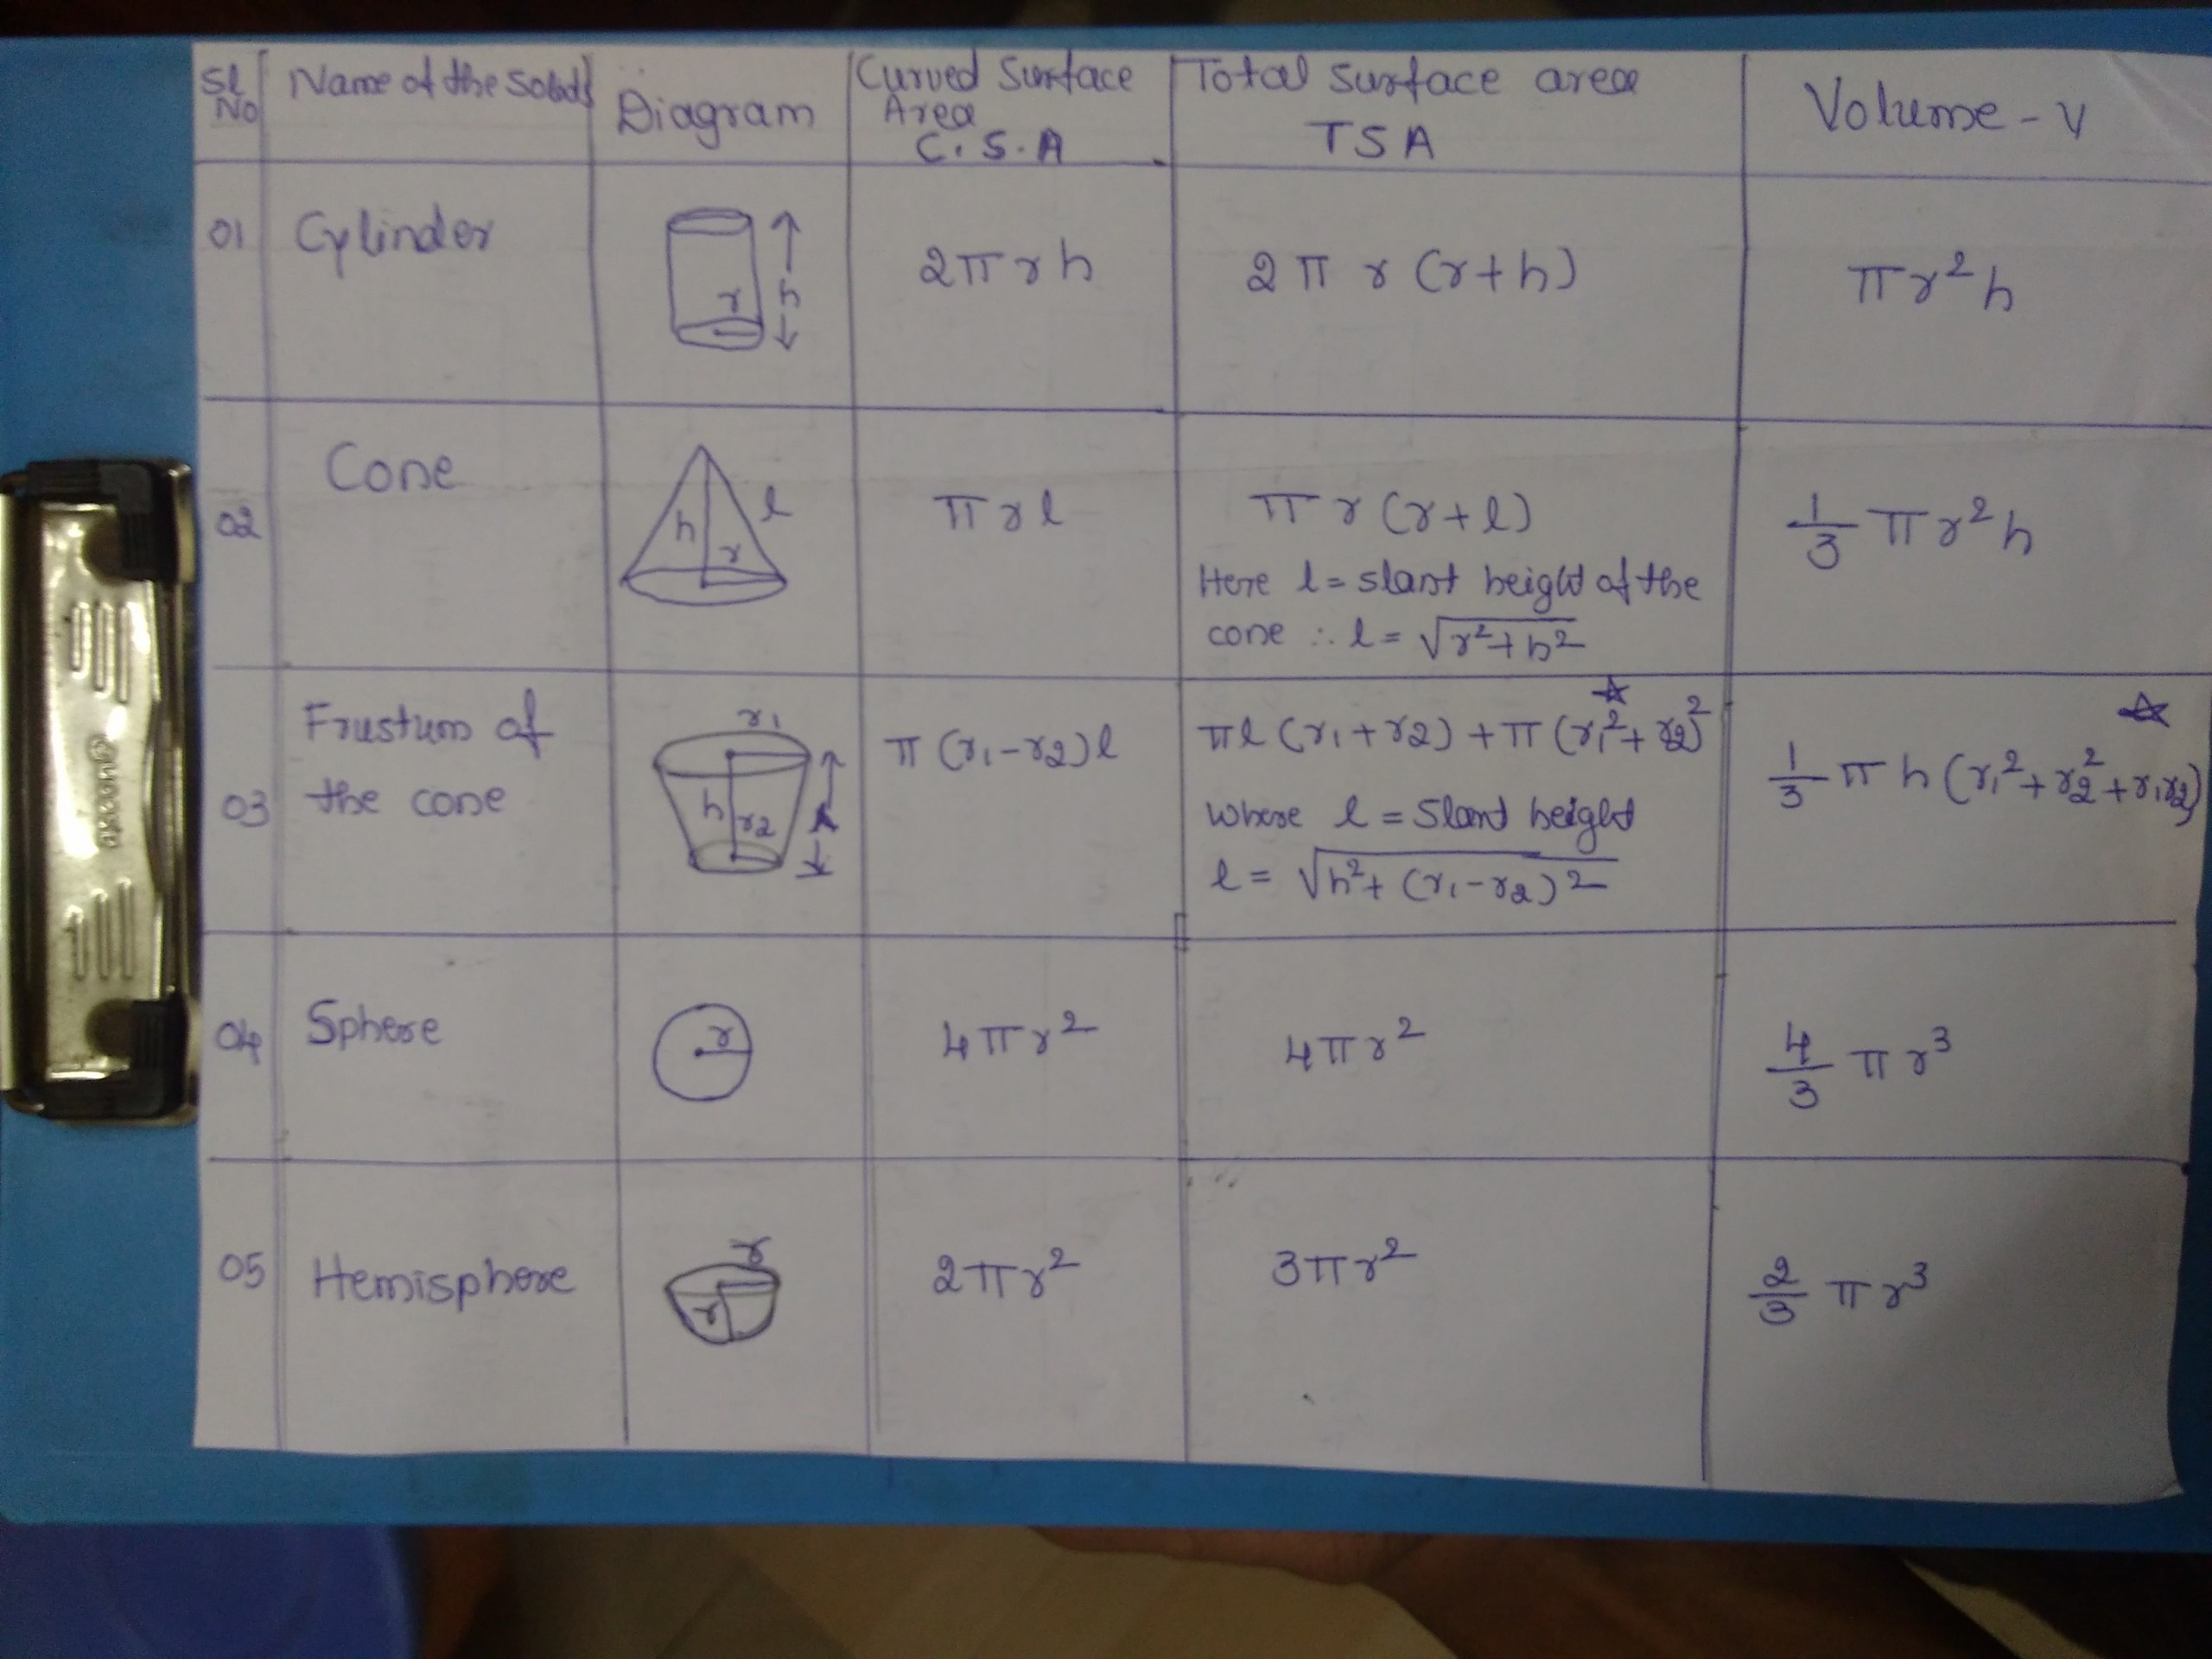 Sl No
Name of the Solids
Diagram
Curved Surface Area
C.S.A
Total surface area
TSA
Volume - V
01
Cylinder
r
h
2πrh
2πr(r+h)
πr²h
02
Cone
h
r
l
πrl
πr(r+l)
Here l = slant height of the
cone ∴ l = √(r²+h²)
1/3 πr²h
03
Frustum of
the cone
r1
h
r2
π(r1-r2)l
πl(r1+r2)+π(r1²+r2)²
Where l = Slant height
l = √(h²+(r1-r2)²)
1/3 πh(r1²+r2²+r1r2)
04
Sphere
r
4πr²
4πr²
4/3 πr³
05
Hemisphere
r
r
2πr²
3πr²
2/3 πr³